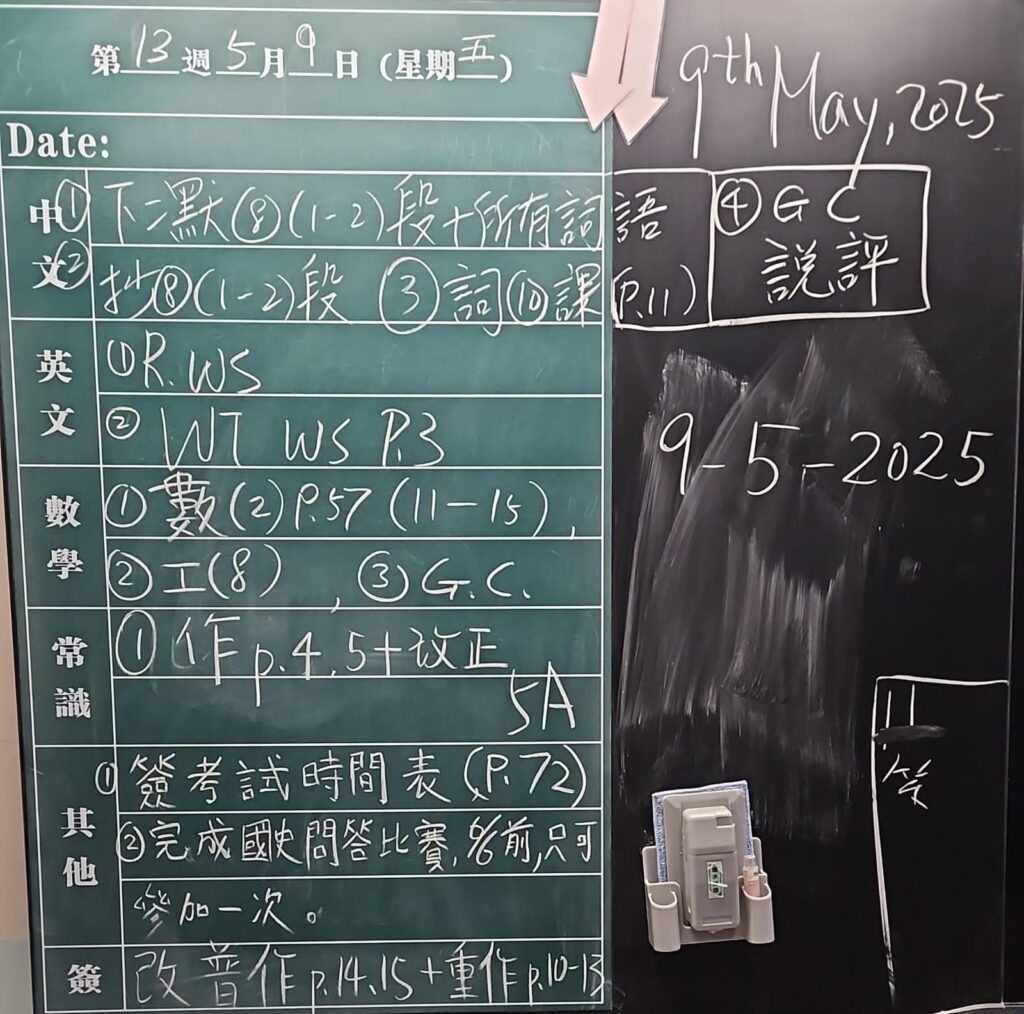 第13週5月9日 (星期五)
9th May, 2025
Date:
中文
① 下二默⑧(1-2)段+所有詞語
② 抄⑧(1-2)段 ③詞⑩課(P.11)
④ G C
說評
英文
① R. WS
② WT WS P.3
9-5-2025
數學
① 數(2)P.57 (11-15),
② 工(8), ③ G.C.
常識
① 作p.4, 5+改正
5A
其他
① 簽考試時間表 (P.72)
② 完成國史問答比賽, 前,只可
參加一次。
簽
改普作p.14.15+重作p.10-13
11